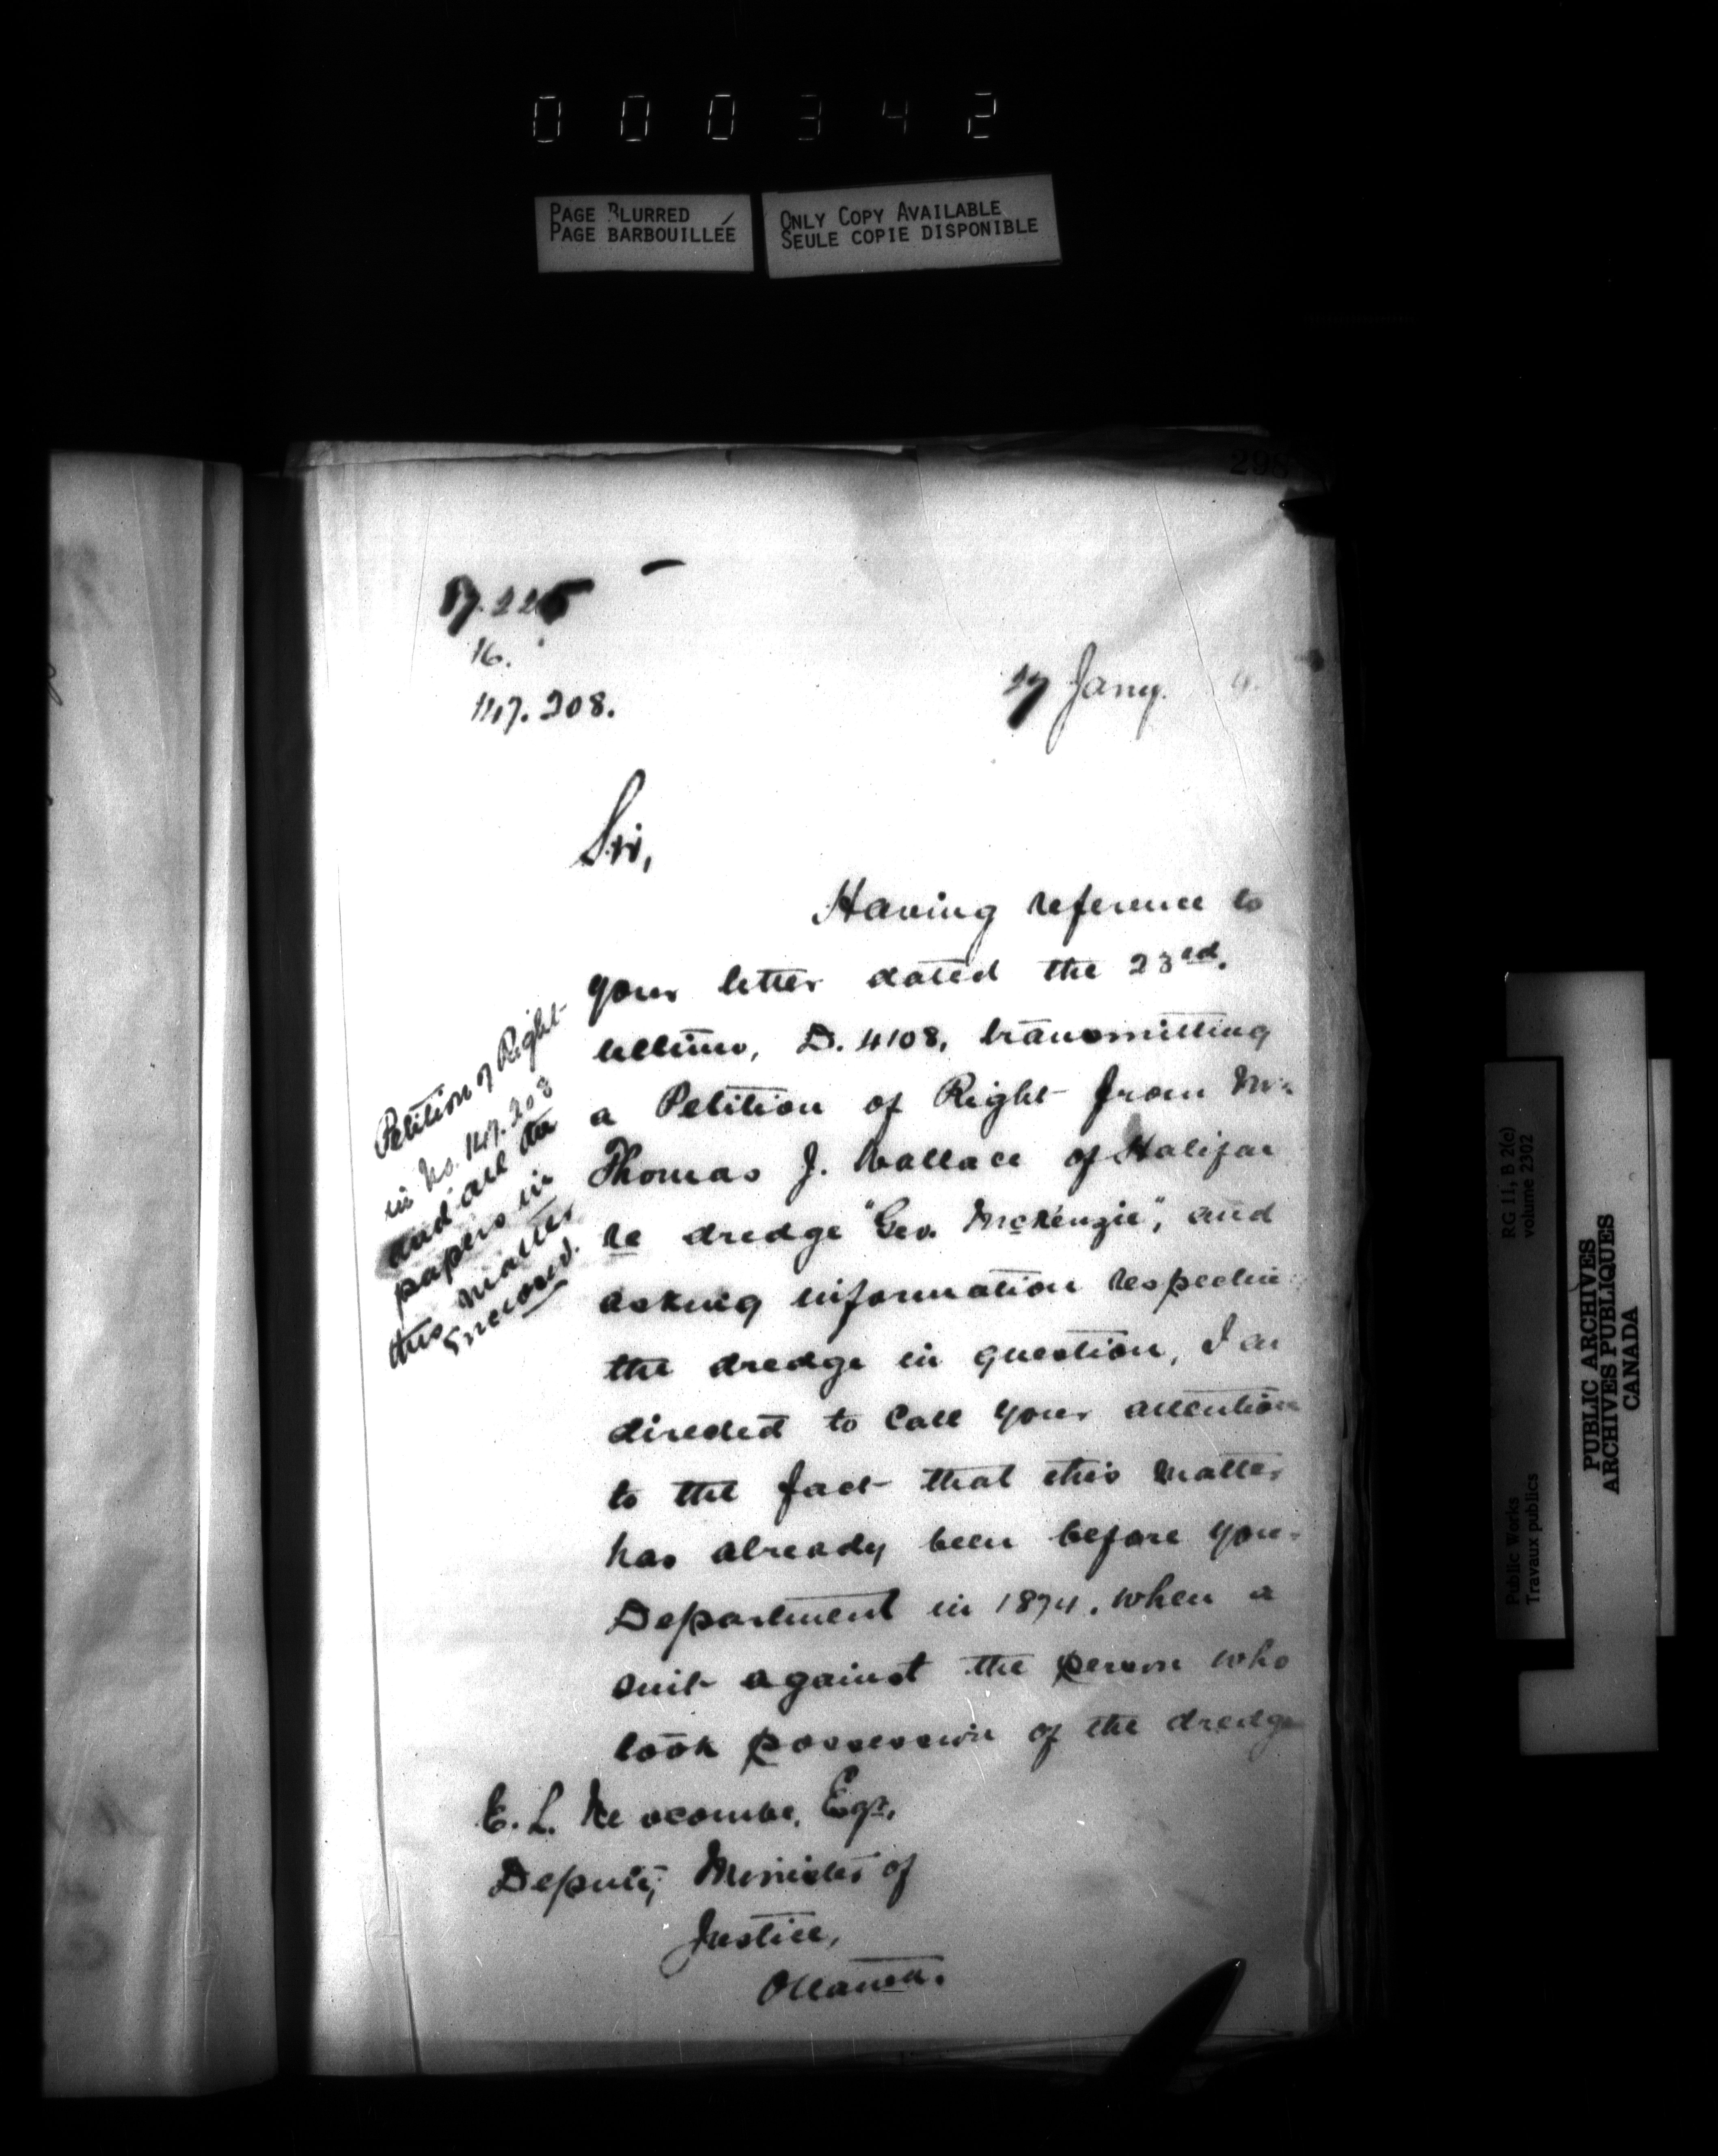 000342
PAGE BLURRED
PAGE BARBOUILLÉE
ONLY COPY AVAILABLE
SEULE COPIE DISPONIBLE
298
17.225
16.
147.208.
27 Jany.
Sir,
Having reference to
your letter dated the 23rd.
ultimo, D. 4108, transmitting
a Petition of Right from Mr.
Thomas J. Wallace of Halifax
re dredge "Geo. McKenzie", and
asking information respectin
the dredge in question, I am
directed to call your attention
to the fact that this matter
has already been before your
Department in 1874, when a
suit against the person who
took possession of the dredge
Petition of Right
in No. 147.208
and all the
papers in
this matter
Enclosed.
E. L. Newcombe, Esqr.
Deputy Minister of
Justice,
Ottawa.
RG 11, B 2(c)
volume 2302
Public Works
Travaux publics
PUBLIC ARCHIVES
ARCHIVES PUBLIQUES
CANADA